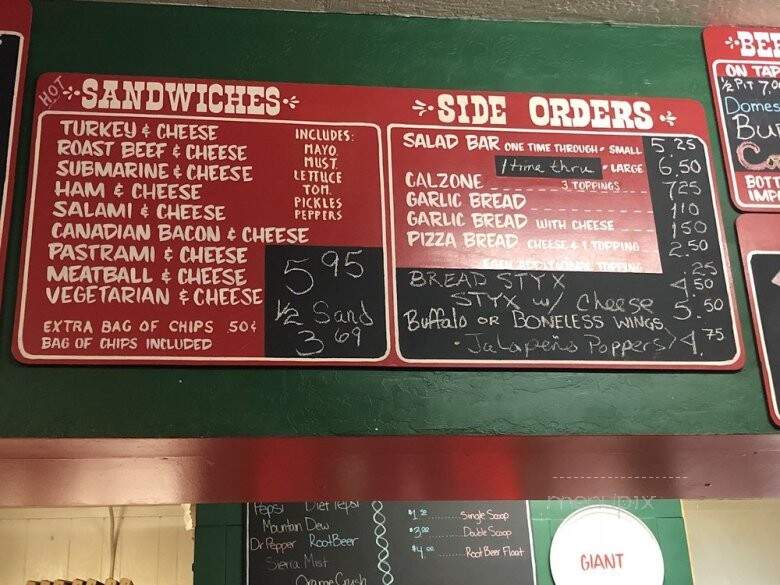 HOT SANDWICHES
TURKEY & CHEESE
ROAST BEEF & CHEESE
SUBMARINE & CHEESE
HAM & CHEESE
SALAMI & CHEESE
CANADIAN BACON & CHEESE
PASTRAMI & CHEESE
MEATBALL & CHEESE
VEGETARIAN & CHEESE
EXTRA BAG OF CHIPS 50¢
BAG OF CHIPS INCLUDED
INCLUDES:
MAYO
MUST
LETTUCE
TOM.
PICKLES
PEPPERS
5 95
1/2 Sand
3 69
SIDE ORDERS
SALAD BAR ONE TIME THROUGH - SMALL 5.25
1 time thru - LARGE 6.50
CALZONE 3 TOPPINGS 7.25
GARLIC BREAD 1.10
GARLIC BREAD WITH CHEESE 1.50
PIZZA BREAD CHEESE & 1 TOPPING 2.50
EACH ADDITIONAL TOPPING .25
BREAD STYX 4.50
STYX w/ Cheese 5.50
Buffalo OR BONELESS WINGS
Jalapeño Poppers 4.75
ON TAP
1/2 PIT
Pepsi Diet Pepsi
Mountain Dew
Dr Pepper RootBeer
Sierra Mist
Orange Crush
Single Scoop
Double Scoop
Root Beer Float
GIANT
menupix